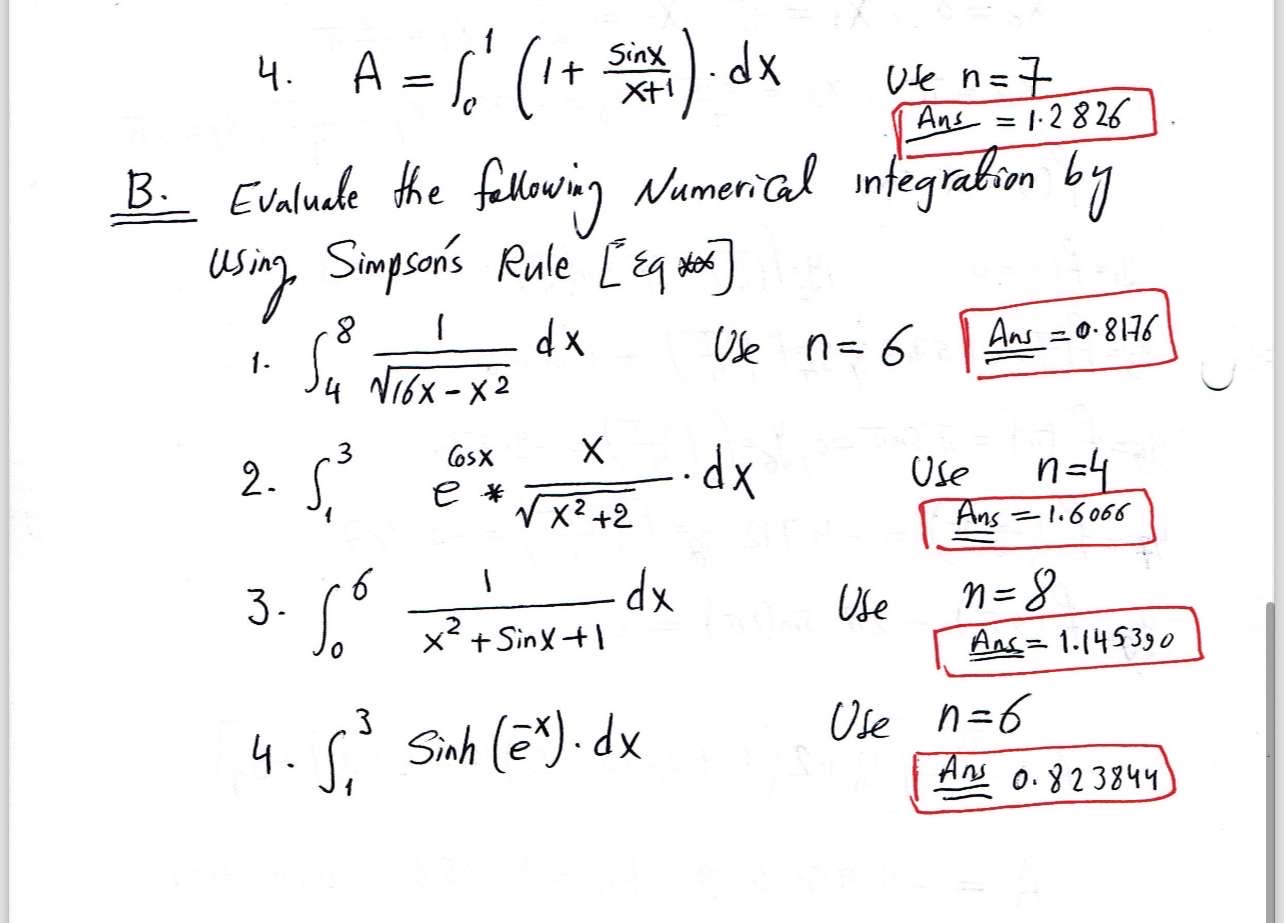 4. A = ∫₀¹ (1 + Sinx/(x+1)) · dx Use n=7
Ans = 1.2826
B. Evaluate the following Numerical integration by
using Simpson's Rule [Eq **]
1. ∫₄⁸ 1/√(16x - x²) dx Use n= 6 Ans = 0.8176
2. ∫₁³ e^Cosx * x/√(x²+2) · dx Use n=4
Ans = 1.6066
3. ∫₀⁶ 1/(x² + Sinx + 1) dx Use n=8
Ans = 1.145390
4. ∫₁³ Sinh (e⁻ˣ) · dx Use n=6
Ans 0.823844